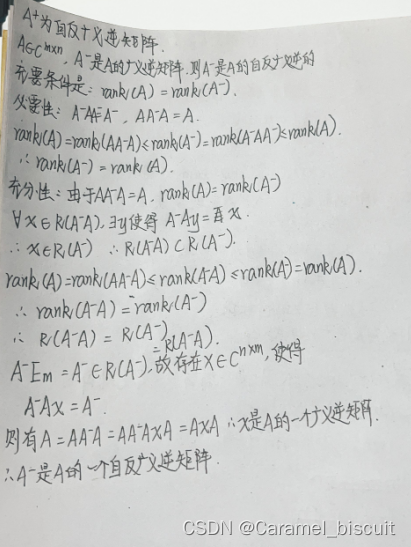 A⁺为自反广义逆矩阵.
A∈C^{m×n}, A⁻是A的广义逆矩阵. 则A⁻是A的自反广义逆的
充要条件是: rank(A) = rank(A⁻).
必要性: A⁻AA⁻=A⁻, AA⁻A = A.
rank(A)=rank(AA⁻A)≤rank(A⁻)=rank(A⁻AA⁻)≤rank(A).
∴ rank(A⁻) = rank(A).
充分性: 由于AA⁻A=A, rank(A)=rank(A⁻)
∀x∈R(A⁻A), ∃y使得 A⁻Ay = x.
∴ x∈R(A⁻) ∴ R(A⁻A) ⊂ R(A⁻).
rank(A)=rank(AA⁻A) ≤ rank(A⁻A) ≤ rank(A⁻)=rank(A).
∴ rank(A⁻A) = rank(A⁻)
∴ R(A⁻A) = R(A⁻)
= R(A⁻A).
A⁻Em = A⁻ ∈ R(A⁻), 故存在X∈C^{n×m}, 使得
A⁻AX = A⁻.
则有A = AA⁻A = AA⁻AXA = AXA ∴X是A的一个广义逆矩阵.
∴A⁻是A的一个自反广义逆矩阵.
CSDN @Caramel_biscuit